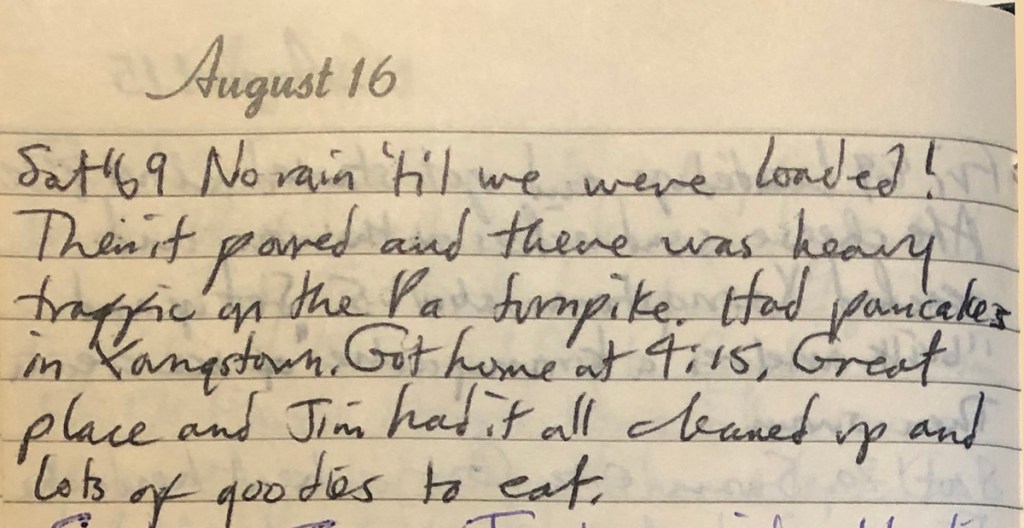 August 16
Sat '69 No rain 'til we were loaded!
Then it poured and there was heavy
traffic on the Pa turnpike. Had pancakes
in Youngstown. Got home at 4:15. Great
place and Jim had it all cleaned up and
lots of goodies to eat.